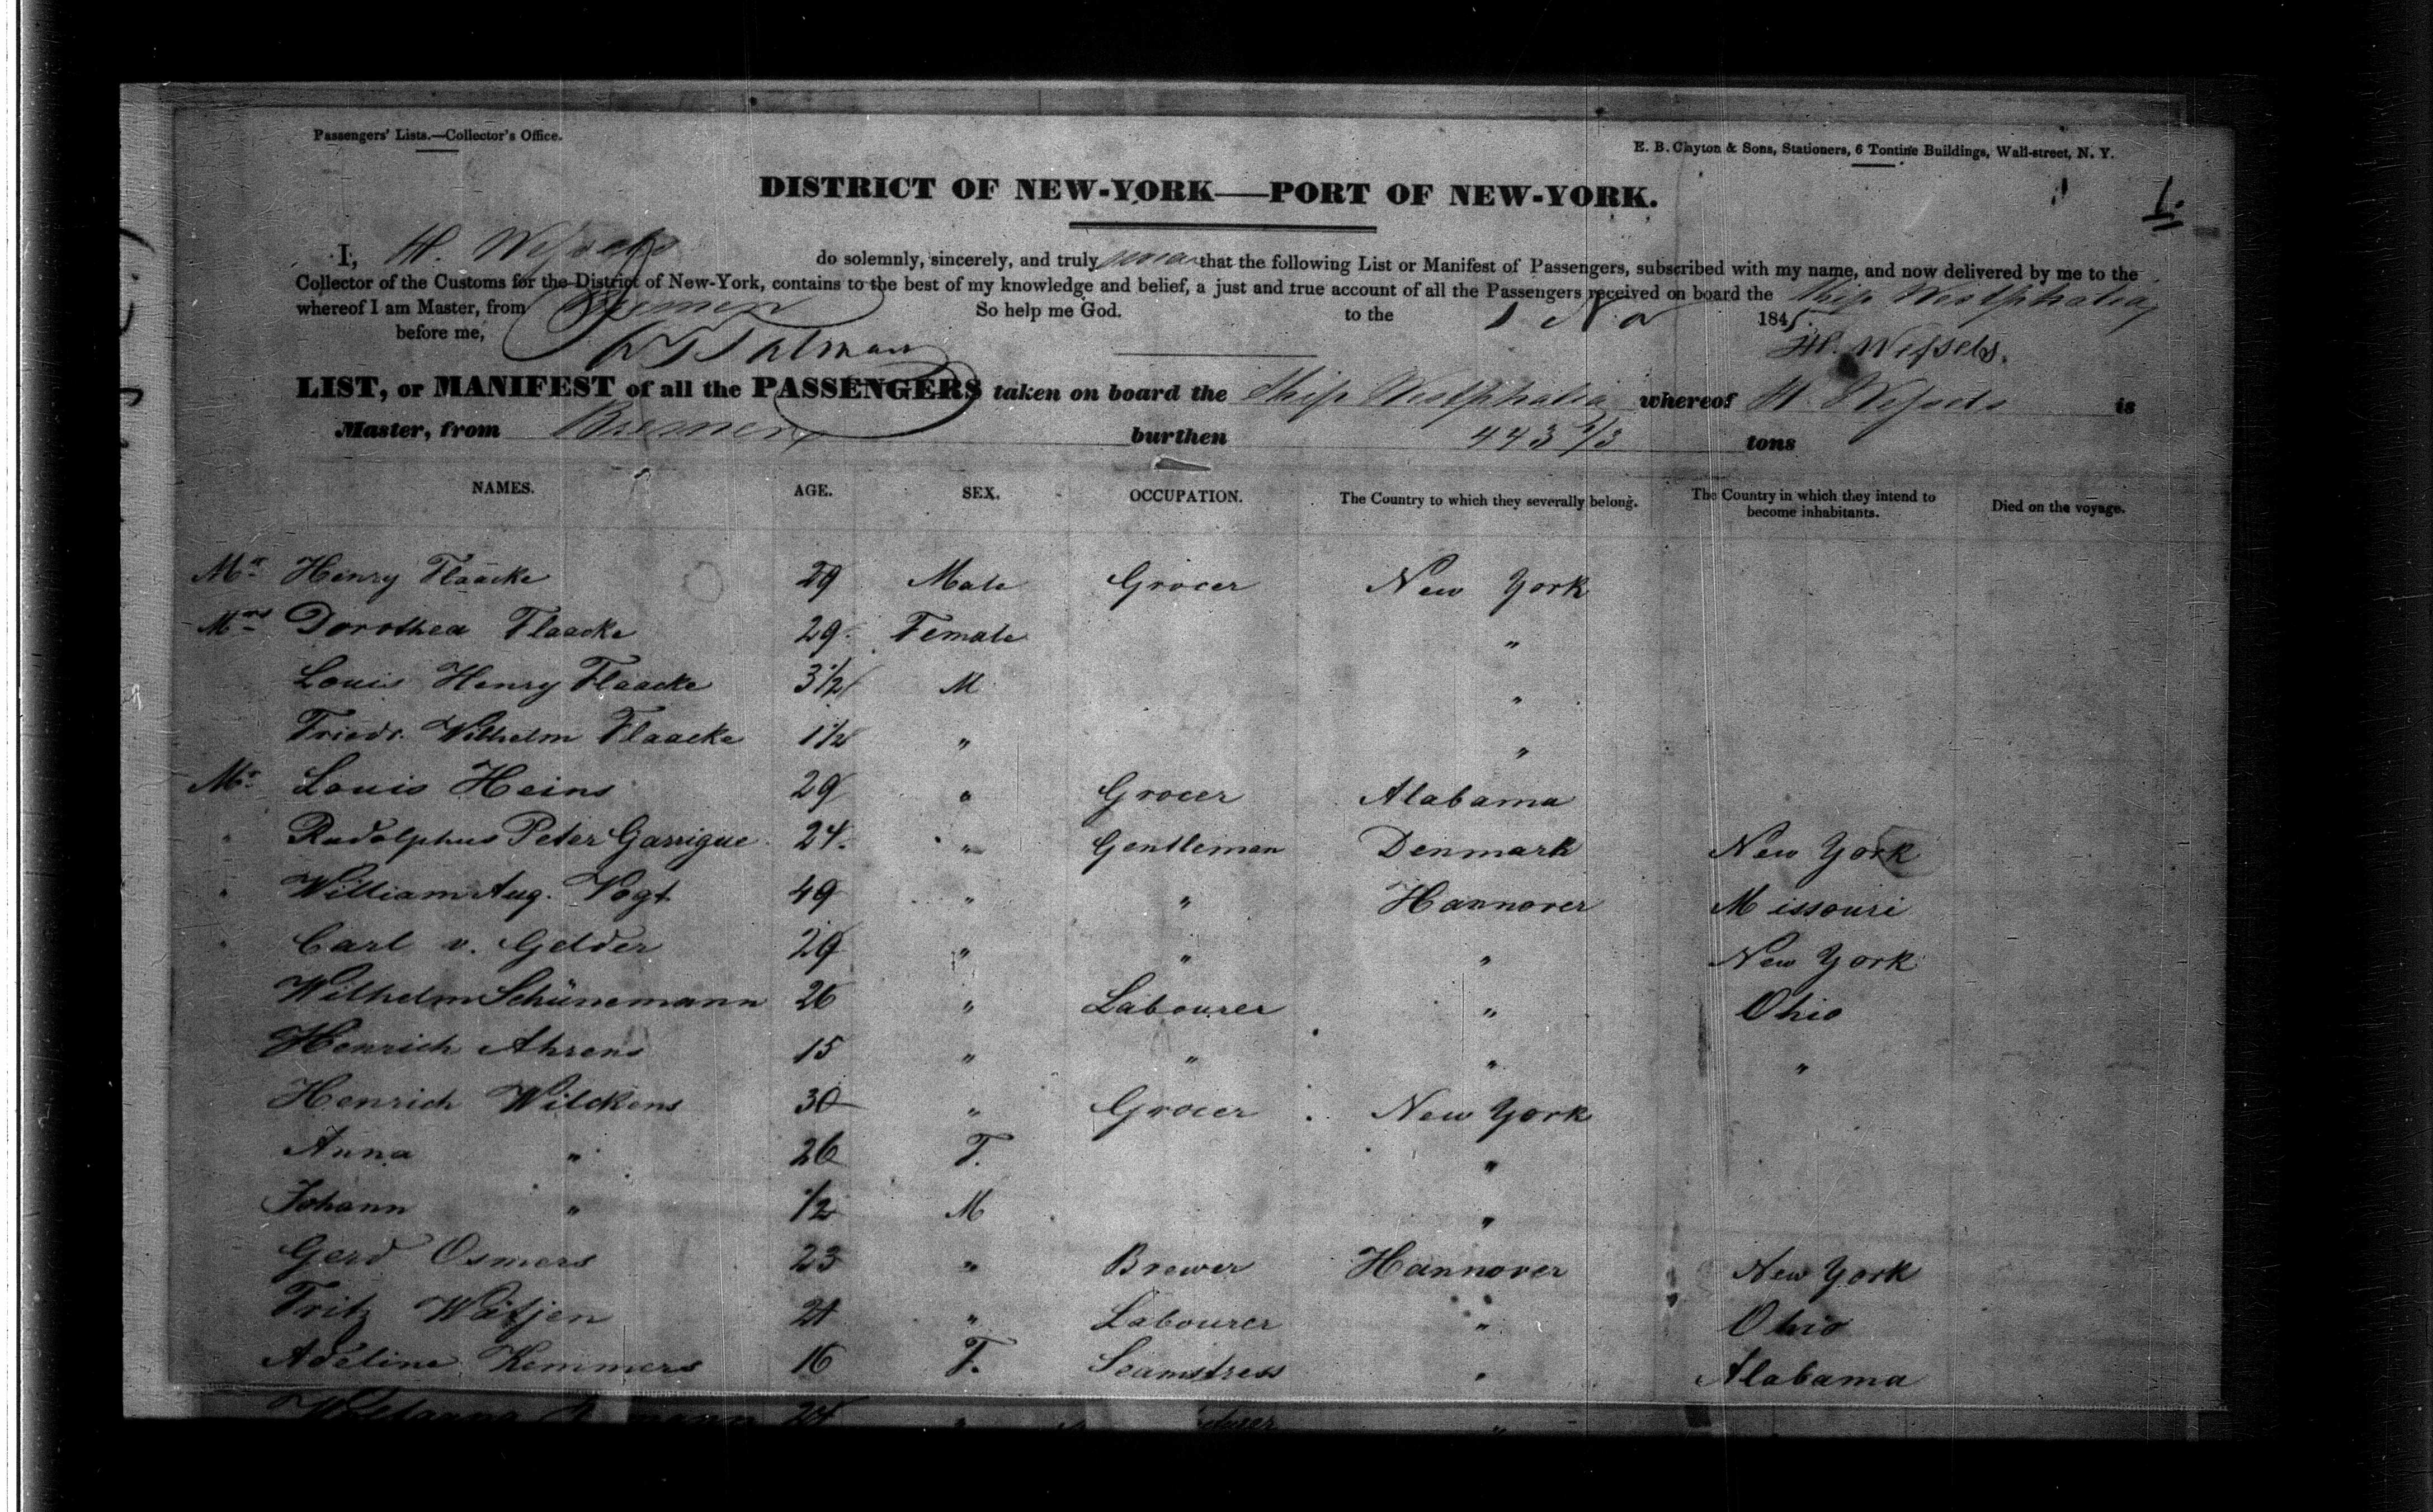 Passengers' Lists.—Collector's Office.
E. B. Clayton & Sons, Stationers, 6 Tontine Buildings, Wall-street, N. Y.
1.
DISTRICT OF NEW-YORK—PORT OF NEW-YORK.
I, H. Wessels do solemnly, sincerely, and truly swear that the following List or Manifest of Passengers, subscribed with my name, and now delivered by me to the
Collector of the Customs for the District of New-York, contains to the best of my knowledge and belief, a just and true account of all the Passengers received on board the Ship Westphalia
whereof I am Master, from Bremen So help me God. to the 1 No 1845.
before me, Talman H. Wessels.
LIST, or MANIFEST of all the PASSENGERS taken on board the Ship Westphalia whereof H. Wessels is
Master, from Bremen burthen 443 2/3 tons
NAMES. AGE. SEX. OCCUPATION. The Country to which they severally belong. The Country in which they intend to become inhabitants. Died on the voyage.
Mr Henry Flaacke 29 Male Grocer New York
Mrs Dorothea Flaacke 29 Female "
Louis Henry Flaacke 3 1/2 M "
Friedr. Wilhelm Flaacke 1 1/2 " "
Mr Louis Heins 29 " Grocer Alabama
" Rudolphus Peter Garrigue 24 " Gentleman Denmark New York
" William Aug. Vogt 49 " " Hannover Missouri
" Carl v. Gelder 29 " " " New York
Wilhelm Schünemann 26 " Labourer " Ohio
Henrich Ahrens 15 " " " "
Henrich Wilckens 30 " Grocer New York
Anna " 26 F. "
Johann " 1/2 M "
Gerd Osmers 23 " Brewer Hannover New York
Fritz Wätjen 21 " Labourer " Ohio
Adeline Kemmers 16 F. Seamstress " Alabama
24 " "